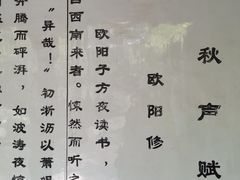 秋声赋
欧阳修
欧阳子方夜读书，
西南来者。悚然而听之
“异哉！”初淅沥以萧飒
奔腾而砰湃，如波涛夜惊